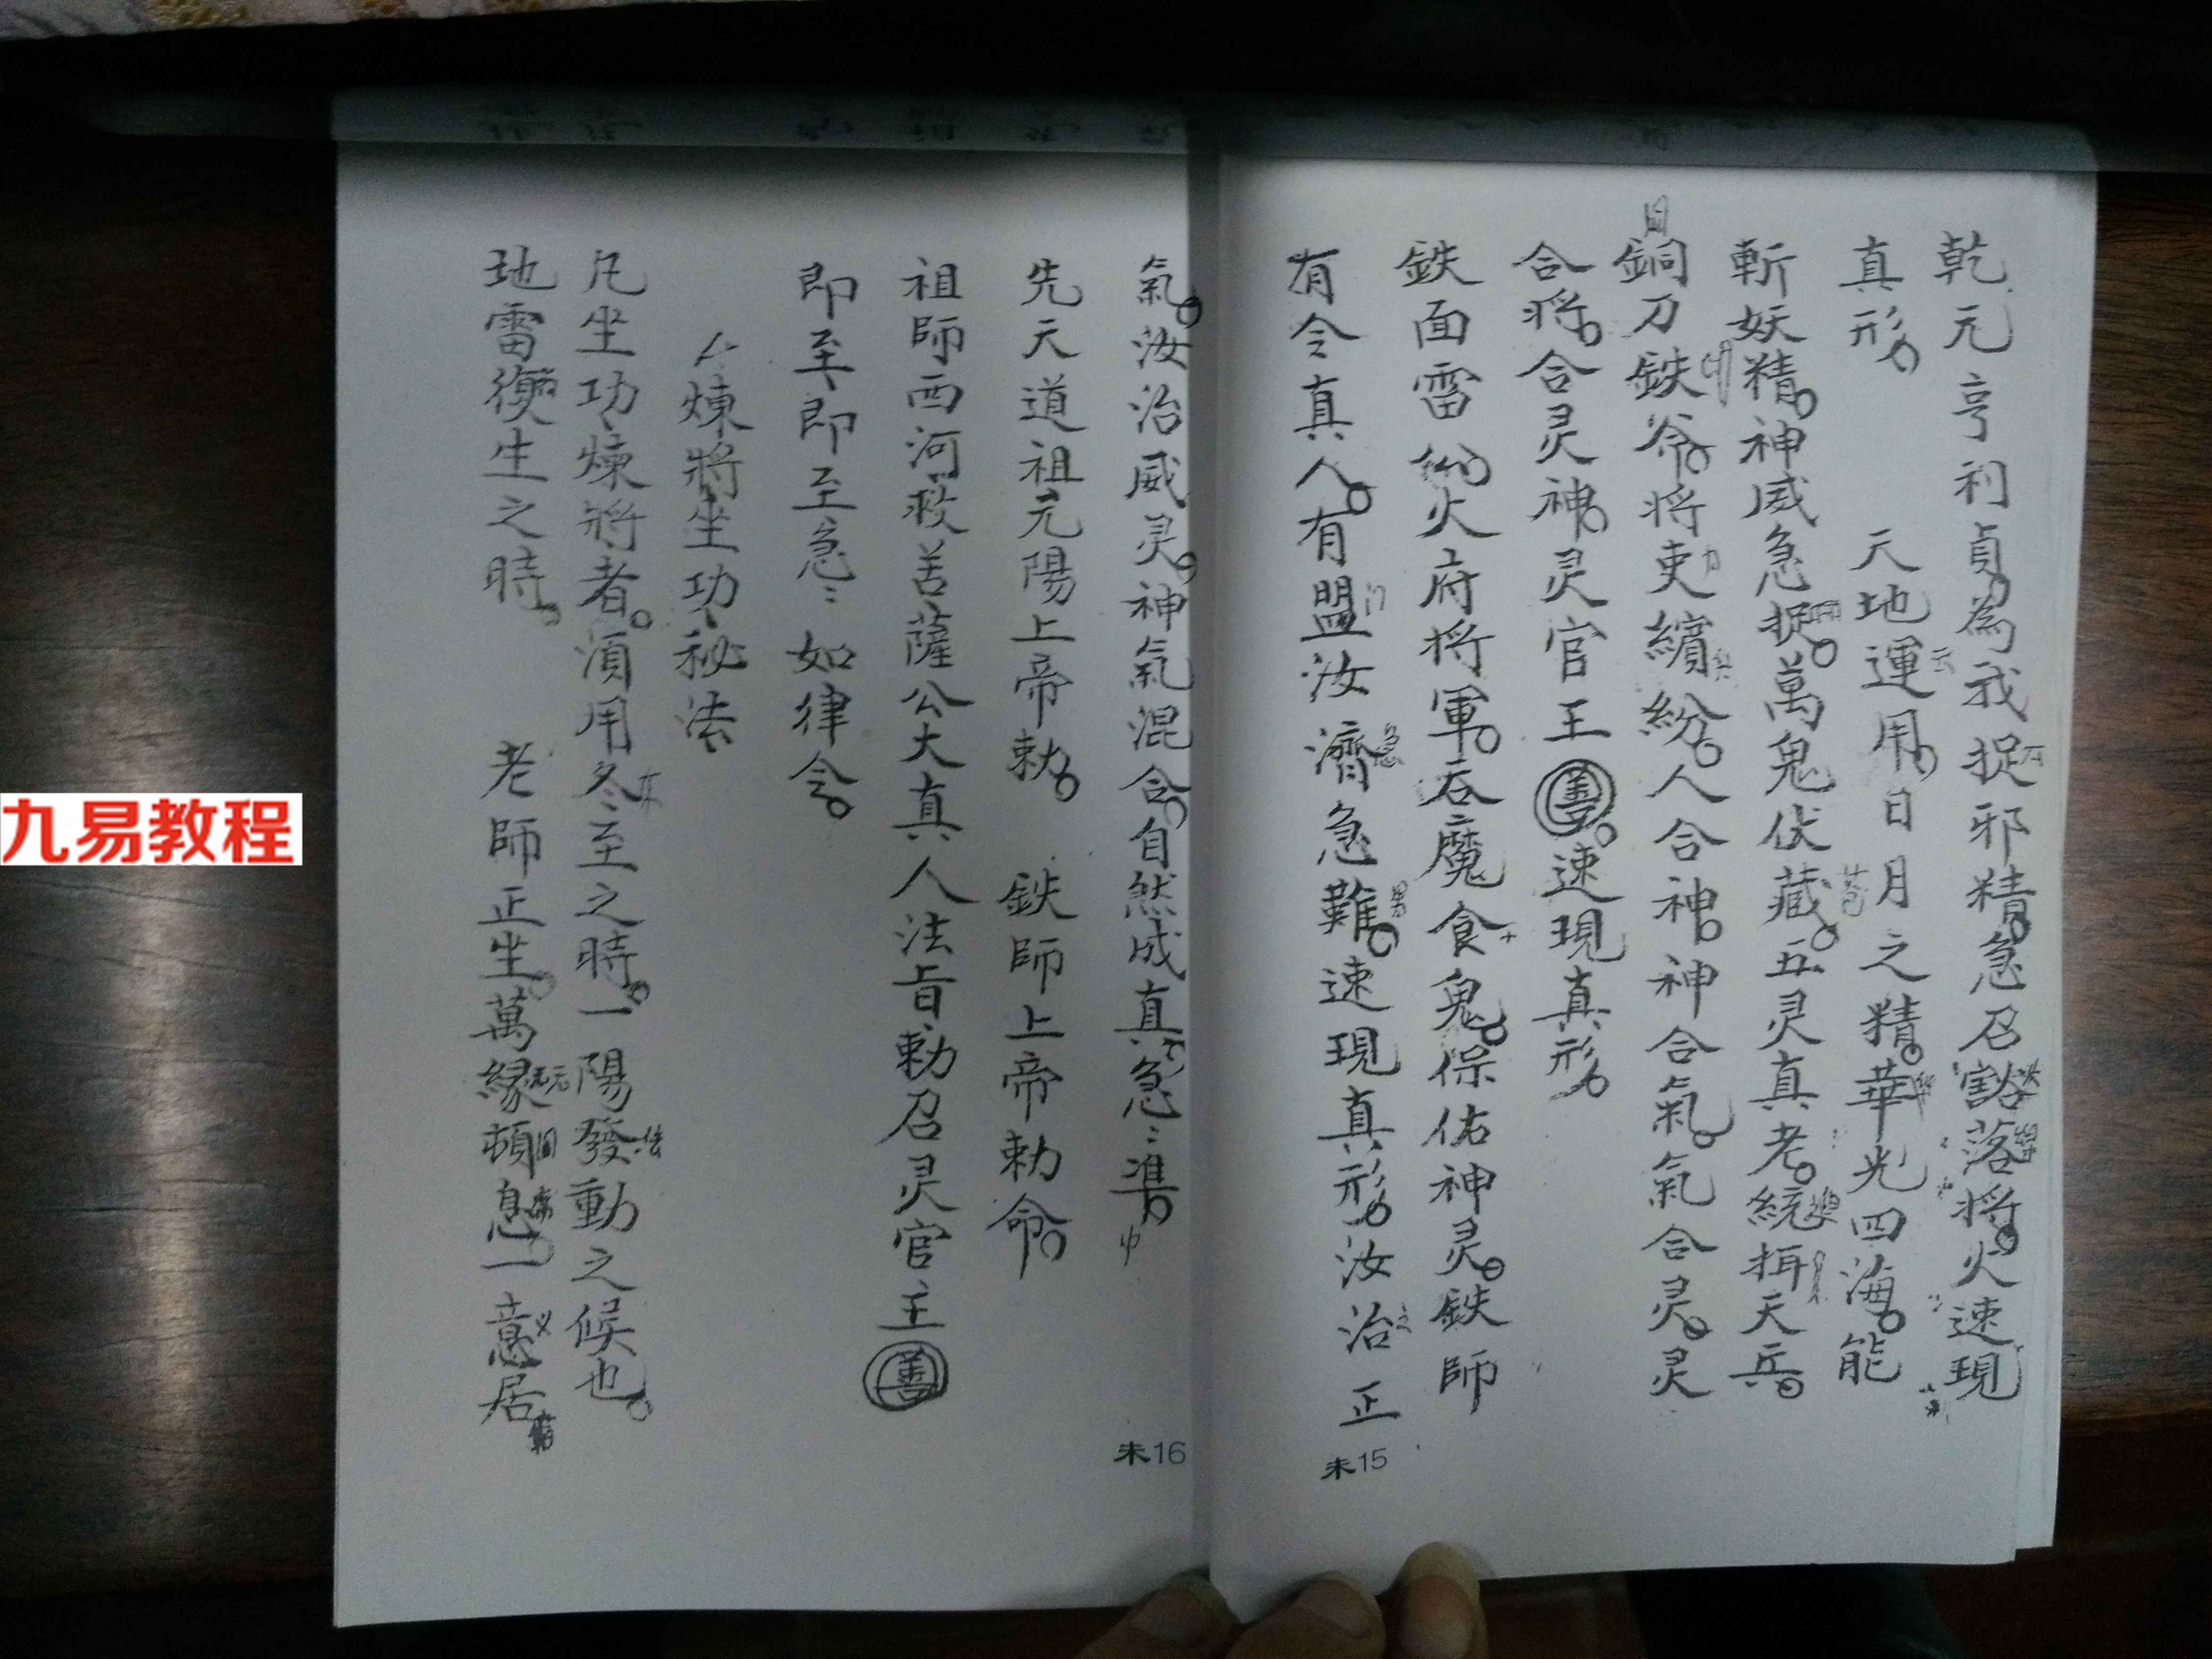 乾元亨利貞。為我捉邪精。急召豁落將。火速現
真形。 天地運用。日月之精。華光四海。能
斬妖精。神威急捉。萬鬼伏藏。五灵真老。統揖天兵。
銅刀鉄斧。将吏繽紛。人合神。神合氣。氣合灵。灵
合將。合灵神。灵官王善。速現真形。
鉄面雷公。火府将軍。吞魔食鬼。保佑神灵。鉄師
有令真人。有盟汝濟急難。速現真形。汝治正
未15
氣。汝治威灵。神氣混合。自然成真。急:準。
先天道祖元陽上帝勅。 鉄師上帝勅命。
祖師西河救苦薩公大真人法旨勅召灵官王善
即至即至急:如律令。
煉將坐功秘法
凡坐功煉將者。湏用冬至之時。一陽發動之候也。
地雷復生之時。 老師正坐。萬緣頓息。一意居
未16
九易教程